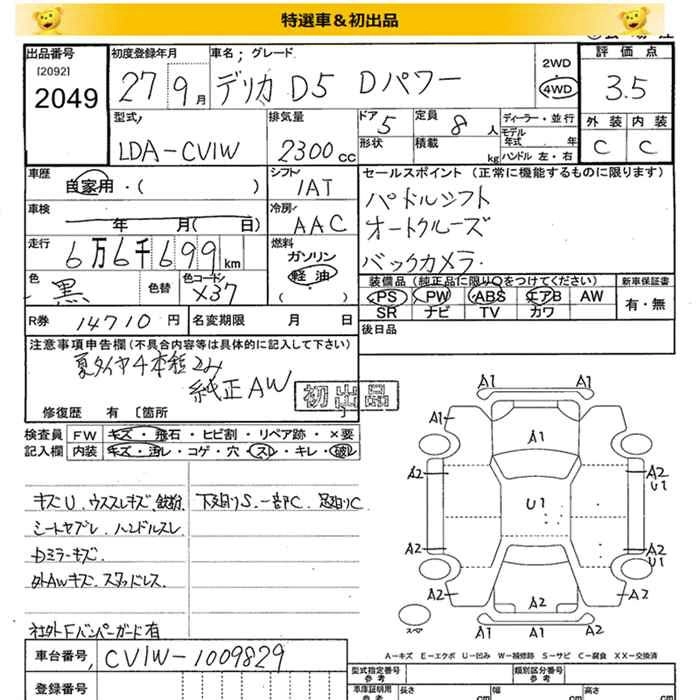 特選車＆初出品
出品番号
[2092]
2049
初度登録年月
27 9月
車名; グレード
デリカ D5 Dパワー
2WD
4WD
評価点
3.5
外装 内装
C C
型式
LDA-CV1W
排気量
2300cc
ドア 5
形状
定員 8人
積載 kg
ディーラー・並行
モデル年式 年
ハンドル 左・右
車歴
自家用・( )
シフト
IAT
セールスポイント (正常に機能するものに限ります)
パドルシフト
オートクルーズ
バックカメラ.
車検
年 月( 日)
冷房
AAC
走行
6万6千699km
燃料
ガソリン
軽油
( )
色
黒
色替
色コード
X37
装備品 (純正品に限り○をつけてください)
PS PW ABS エアB AW
SR ナビ TV カワ
新車保証書
有・無
R券 14710円
名変期限 月 日
後日品
注意事項申告欄 (不具合内容等は具体的に記入して下さい)
夏タイヤ4本積み
純正AW
初出品
修復歴 有 〔箇所 〕
検査員記入欄
FW キズ・飛石・ヒビ割・リペア跡・×要
内装 キズ・汚レ・コゲ・穴・スレ・キレ・破レ
キズU. ウススレキズ. 鉄粉
下回りS. 一部C. 足回りC
シートヤブレ. ハンドルスレ
ドミラーキズ.
外AWキズ. スタッドレス.
社外Fバンパーガード有
A1 A1
A1
A1
A2 A2
U1
U1
A2 A2
U1
A2 A2 A2
A1 A1 A1
スペア
A－キズ E－エクボ U－凹み W－補修跡 S－サビ C－腐食 XX－交換済
車台番号 CV1W-1009829
登録番号
型式指定番号
参考
類別区分番号
参考
車庫証明用
参考
長さ cm
幅 cm
高さ cm